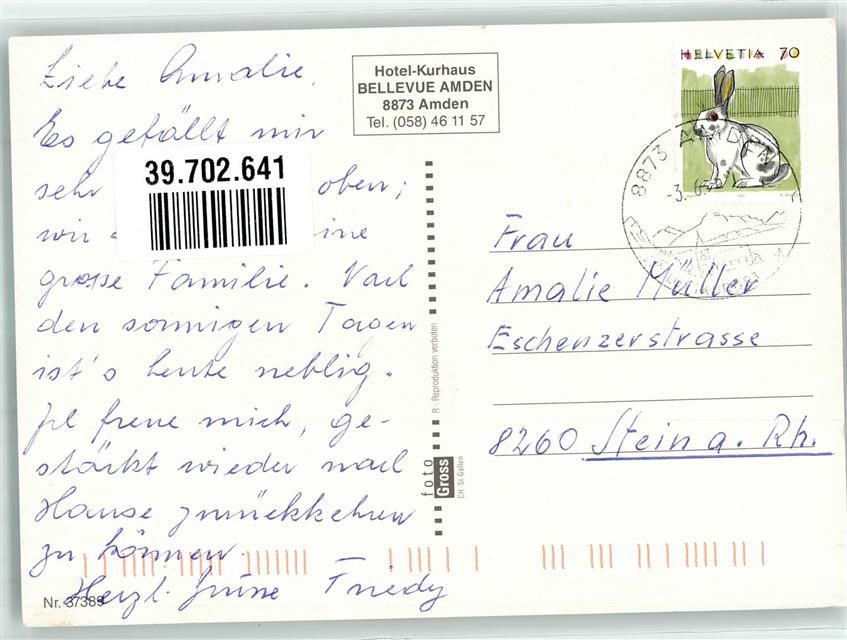 Liebe Amalie,
Es gefällt mir
sehr oben;
wir eine
grosse Familie. Nach
den sonnigen Tagen
ist's heute neblig.
Ich freue mich, ge-
stärkt wieder nach
Hause zurückkehren
zu können.
Herzl. Grüsse Friedy
Nr. 37389
39.702.641
Hotel-Kurhaus
BELLEVUE AMDEN
8873 Amden
Tel. (058) 46 11 57
R - Reproduktion verboten
foto
Gross
CH-St.Gallen
HELVETIA 70
8873 AMDEN
-3. 6.
Frau
Amalie Müller
Eschenzerstrasse
8260 Stein a. Rh.